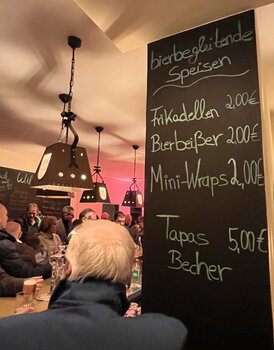 bierbegleitende
Speisen
Frikadellen 2,00€
Bierbeißer 2,00€
Mini-Wraps 2,00€
Tapas 5,00€
Becher